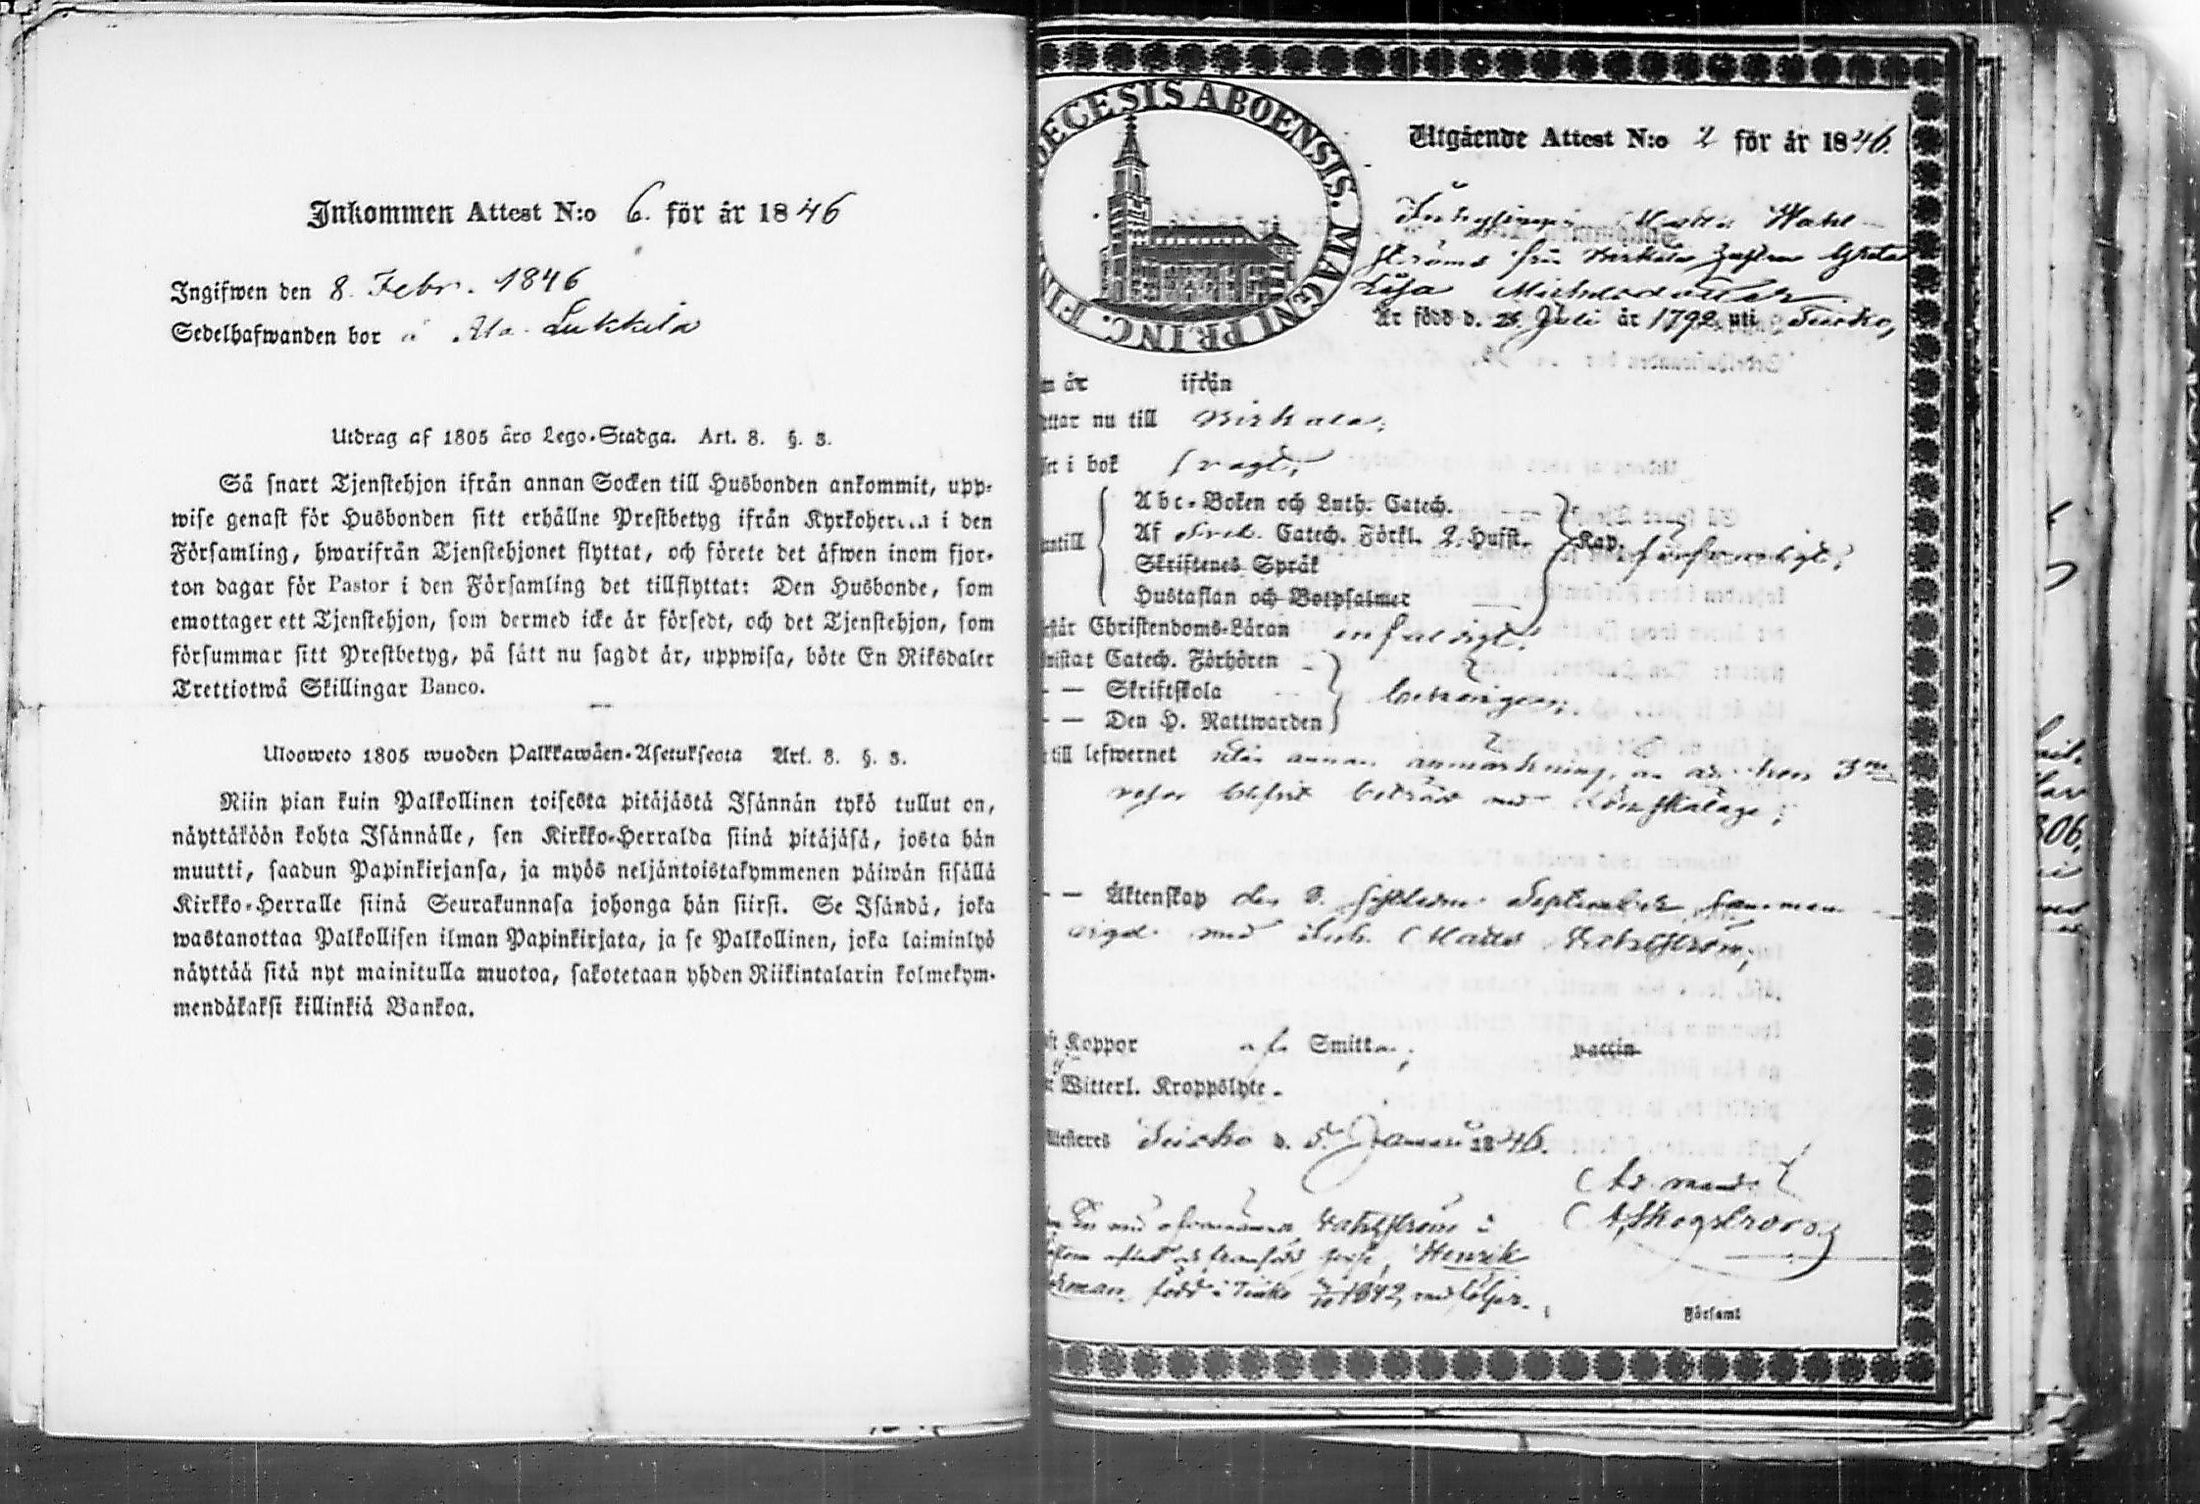 Inkommen Attest N:o 6. för år 1846
Ingifwen den 8. Febr. 1846
Sedelhafwanden bor å Ala Lukkila
Utdrag af 1805 års Lego-Stadga. Art. 8. §. 3.
Så snart Tjenstehjon ifrån annan Socken till Husbonden ankommit, upp-
wise genast för Husbonden sitt erhållne Prestbetyg ifrån Kyrkoherren i den
Församling, hwarifrån Tjenstehjonet flyttat, och förete det äfwen inom fjor-
ton dagar för Pastor i den Församling det tillflyttat: Den Husbonde, som
emottager ett Tjenstehjon, som dermed icke är försedt, och det Tjenstehjon, som
försummar sitt Prestbetyg, på sätt nu sagdt är, uppwisa, böte En Riksdaler
Trettiotwå Skillingar Banco.
Ulosweto 1805 wuoden Palkkawäen-Asetuksesta Art. 8. §. 3.
Niin pian kuin Palkollinen toisesta pitäjästä Isännän tykö tullut on,
näyttäköön kohta Isännälle, sen Kirkko-Herralda siinä pitäjäsä, josta hän
muutti, saadun Papinkirjansa, ja myös neljäntoistakymmenen päiwän sisällä
Kirkko-Herralle siinä Seurakunnasa johonga hän siirsi. Se Isändä, joka
wastanottaa Palkollisen ilman Papinkirjata, ja se Palkollinen, joka laiminlyö
näyttää sitä nyt mainitulla muotoa, sakotetaan yhden Riikintalarin kolmekym-
mendäkaksi killinkiä Bankoa.
DIOECESIS ABOENSIS. MAGNI PRINC. FIN
Utgående Attest N:o 2 för år 1846.
Inhysingen Matts Wahl-
ströms fru Greta
Lisa Michelsdotter
Är född d. 28 Juli år 1792 uti Teisko,
år ifrån
nu till Birkala;
i bok swagt;
Abc-Boken och Luth. Catech.
Af Sveb. Catech. Förkl. 2. Hufst. Kap. försvarligt;
Skriftenes Språk
Hustaflan och Botpsalmer
Christendoms-Läran enfaldigt;
Catech. Förhören
— — Skriftskola behörigen;
— — Den H. Nattwarden
till lefwernet utan annan anmärkning, än att hon 3ne
resor blifvit beträdd med Lönskaläge;
— — Äktenskap den September samman-
vigd med Inh. Matts Wahlström;
Koppor af Smitta; vaccin
Witterl. Kroppslyte.
Teisko d. 5 Januari 1846.
Ad. mand.
A. Skogström
Wahlström
Henrik
Herman, född i Teisko 1842, medföljer.
Församl